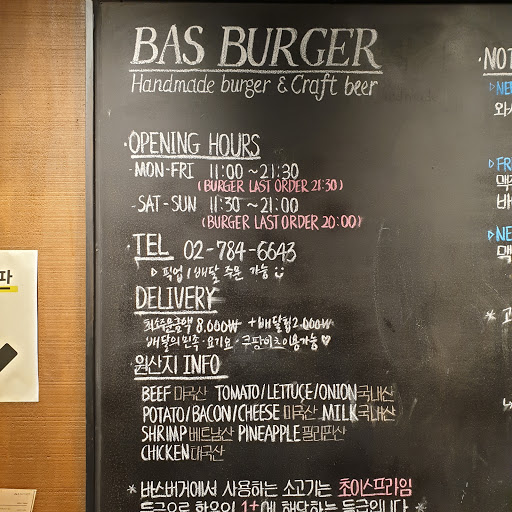 BAS BURGER
Handmade burger & Craft beer
·OPENING HOURS
-MON-FRI 11:00 ~ 21:30
(BURGER LAST ORDER 21:30)
-SAT-SUN 11:30 ~ 21:00
(BURGER LAST ORDER 20:00)
·TEL 02-784-6643
▷ 픽업 / 배달 주문 가능
DELIVERY
최소주문금액 8,000₩ +배달팁2,000₩
배달의민족·요기요·쿠팡이츠이용가능♥
원산지 INFO
BEEF 미국산 TOMATO/LETTUCE/ONION국내산
POTATO/BACON/CHEESE 미국산 MILK국내산
SHRIMP베트남산 PINEAPPLE필리핀산
CHICKEN태국산
* 바스버거에서 사용하는 소고기는 초이스프라임
등급으로 한우의 1+에 해당하는 등급입니다
·NOT
▷NE
와사
▷FR
맥
배
▷NE
맥
* 고
파